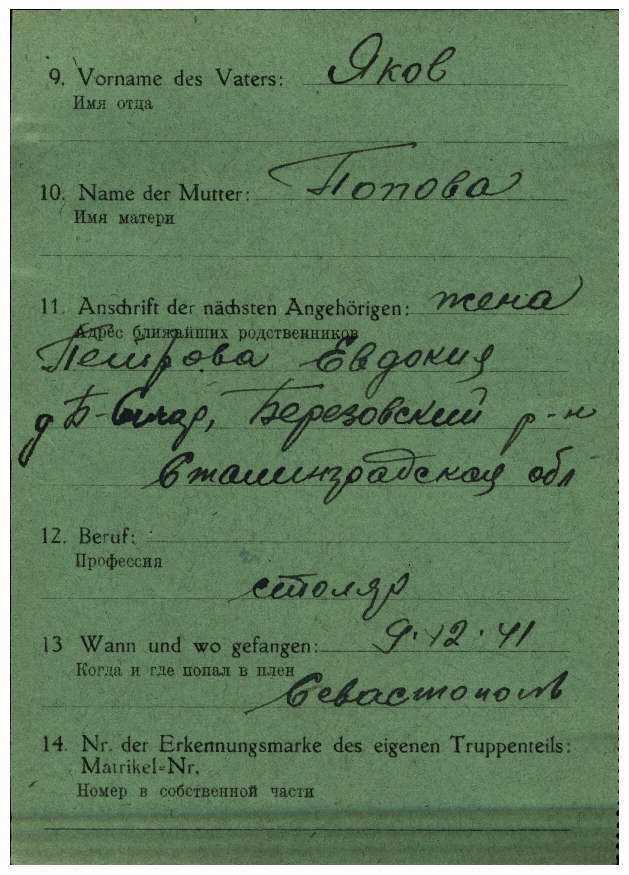 9. Vorname des Vaters: Яков
Имя отца
10. Name der Mutter: Попова
Имя матери
11. Anschrift der nächsten Angehörigen: жена
Адрес ближайших родственников
Петрова Евдокия
д Б-, Березовский р-н
Сталинградская обл
12. Beruf:
Профессия
столяр
13 Wann und wo gefangen: 9.12.41
Когда и где попал в плен
Севастополь
14. Nr. der Erkennungsmarke des eigenen Truppenteils:
Matrikel-Nr.
Номер в собственной части